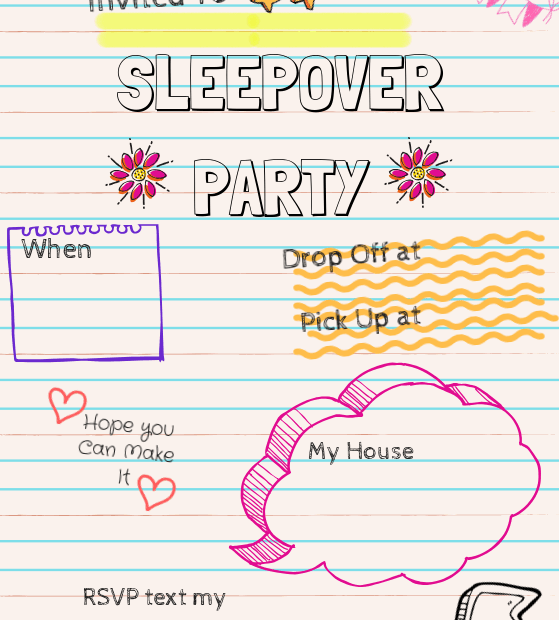 Invited To
SLEEPOVER
PARTY
When
Drop Off at
Pick Up at
Hope you
Can Make
It
My House
RSVP text my